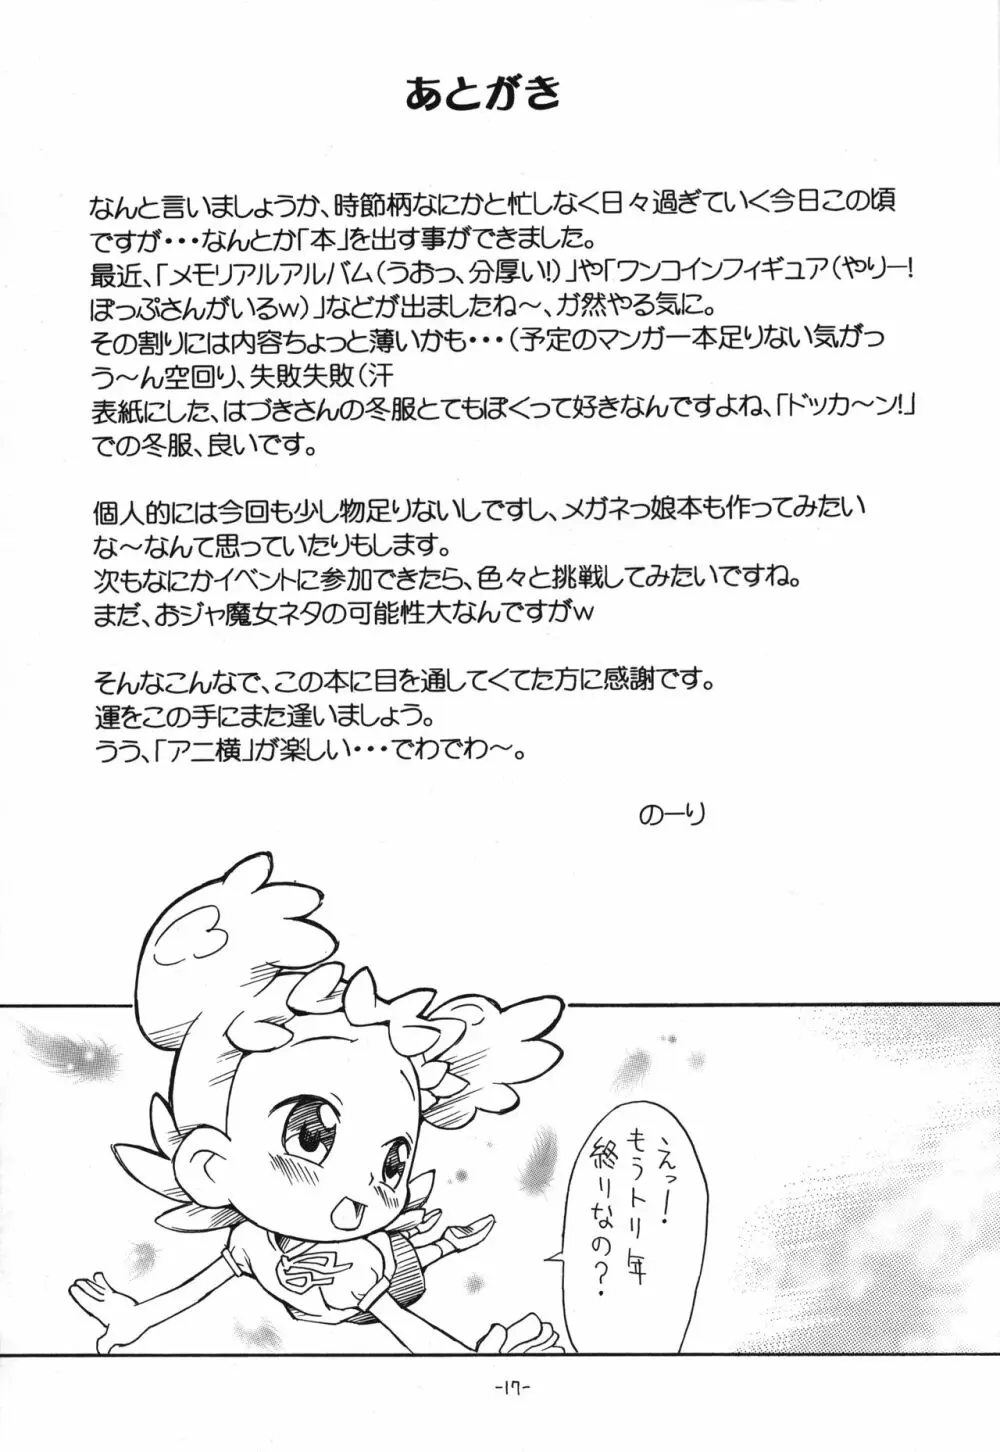 あとがき
なんと言いましょうか、時節柄なにかと忙しなく日々過ぎていく今日この頃
ですが・・・なんとか「本」を出す事ができました。
最近、「メモリアルアルバム(うおっ、分厚い!)」や「ワンコインフィギュア(やりー!
ぽっぷさんがいるｗ)」などが出ましたね～、が然やる気に。
その割りには内容ちょっと薄いかも・・・(予定のマンガ一本足りない気がっ
う～ん空回り、失敗失敗(汗
表紙にした、はづきさんの冬服とてもぽくって好きなんですよね、「ドッカ～ン!」
での冬服、良いです。
個人的には今回も少し物足りないしですし、メガネっ娘本も作ってみたい
な～なんて思っていたりもします。
次もなにかイベントに参加できたら、色々と挑戦してみたいですね。
まだ、おジャ魔女ネタの可能性大なんですがｗ
そんなこんなで、この本に目を通してくてた方に感謝です。
運をこの手にまた逢いましょう。
うう、「アニ横」が楽しい・・・でわでわ～。
のーり
えっ!
もうトリ年
終りなの?
-17-